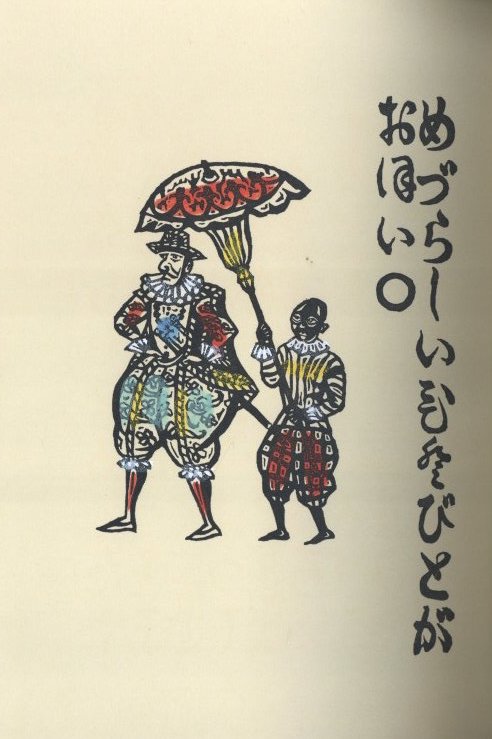 めづらしい びとが
おほい〇